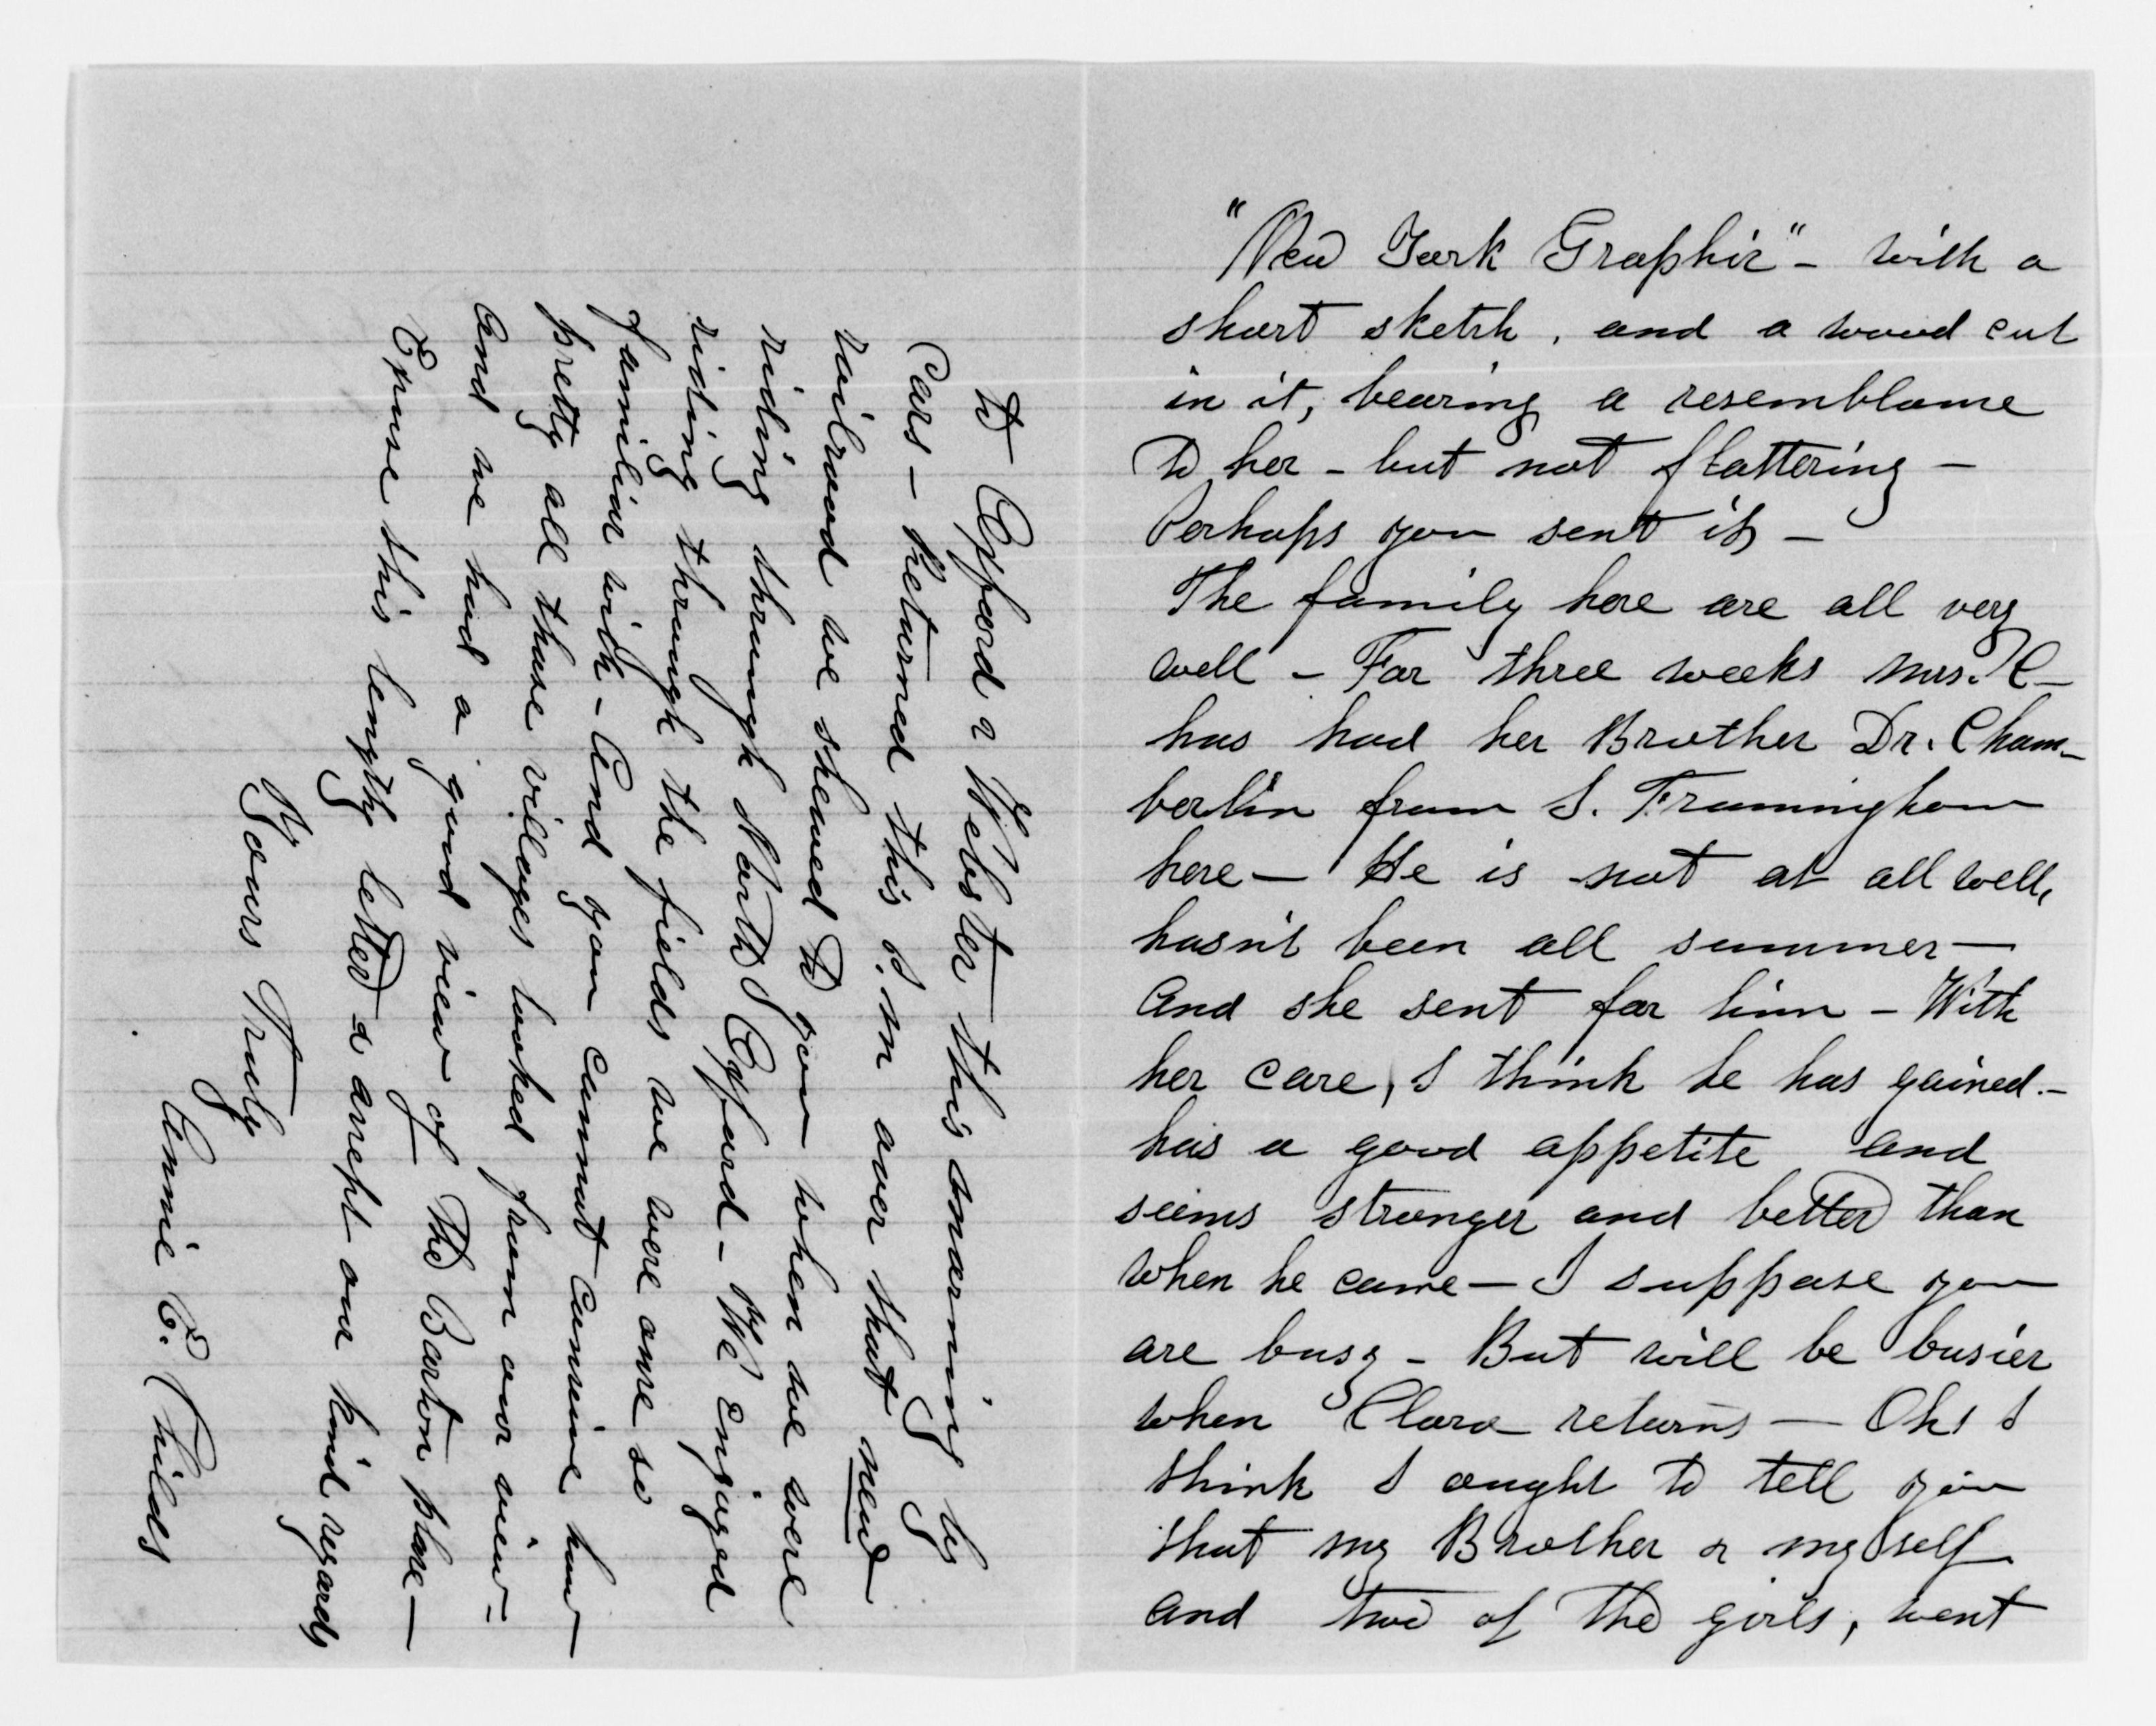 "New York Graphic" - with a
short sketch, and a wood cut
in it, bearing a resemblance
to her - but not flattering -
Perhaps you sent it -
The family here are all very
well - For three weeks Mrs. C-
has had her Brother Dr. Cham-
berlin from S. Framingham
here - He is not at all well,
hasn't been all summer -
and she sent for him - With
her care, I think he has gained. -
has a good appetite and
seems stronger and better than
when he came - I suppose you
are busy - But will be busier
when Clara returns - Oh! I
think I ought to tell you
that my Brother & myself
and two of the girls, went
to Oxford & Webster this morning by
Cars - Returned this P.M over that new
railroad we showed to you when we were
riding through North Oxford - We enjoyed
riding through the fields we were once so
familiar with - And you cannot conceive how
pretty all those villages looked from our view -
and we had a good view of the Barton place -
Excuse this lengthy letter & accept our kind regards
Yours Truly
Annie E. Childs